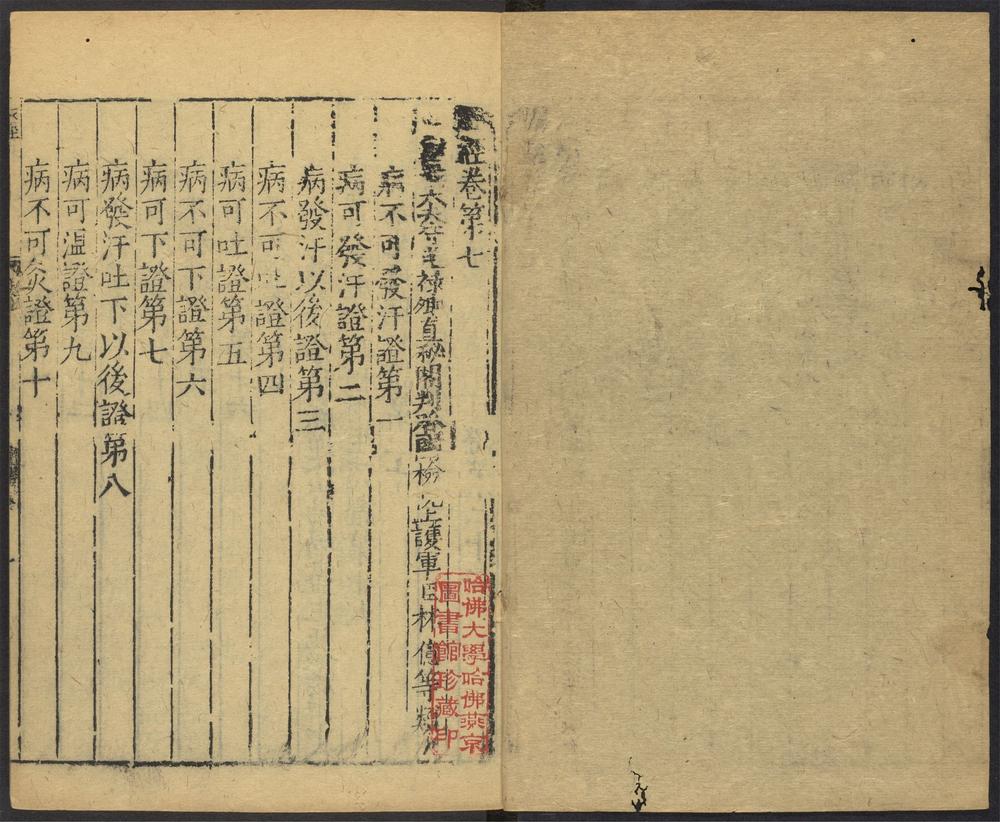 經卷第七
朝散大夫守光祿卿直秘閣判登聞檢院上護軍臣林億等類次
病不可發汗證第一
病可發汗證第二
病發汗以後證第三
病不可證第四
病可吐證第五
病不可下證第六
病可下證第七
病發汗吐下以後證第八
病可溫證第九
病不可灸證第十
哈佛大學哈佛燕京
圖書館珍藏印